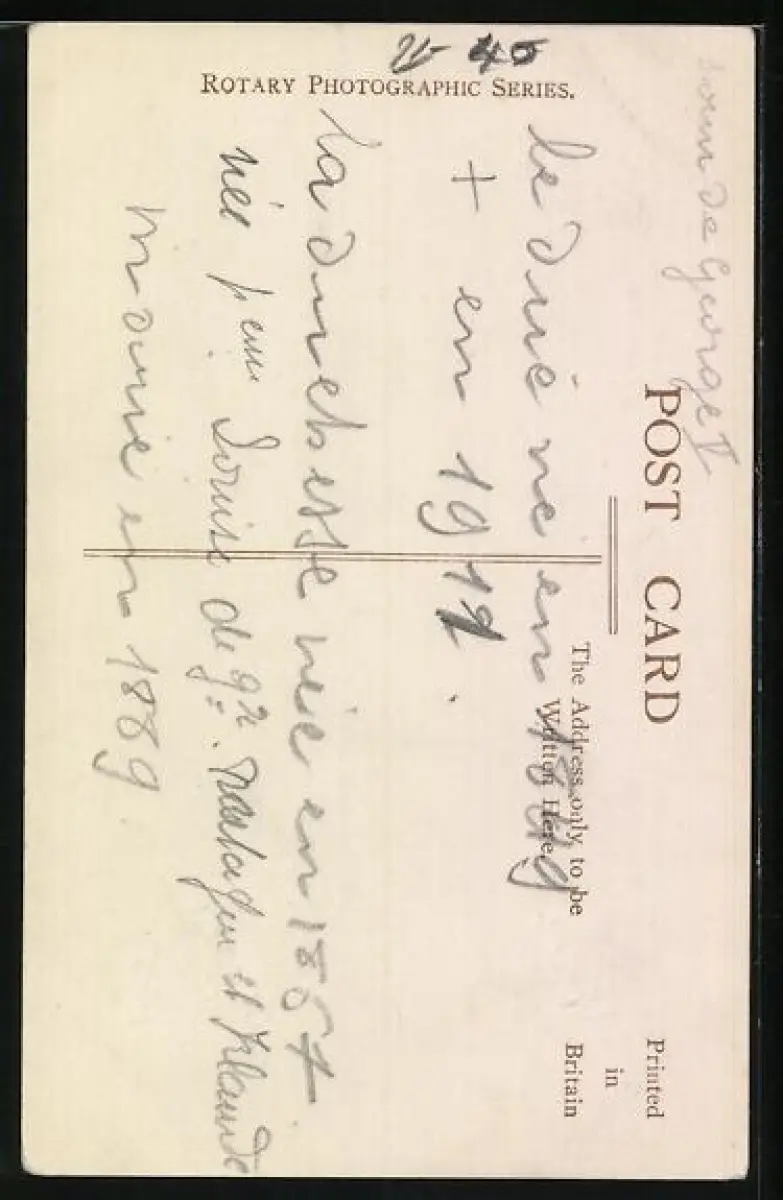 ROTARY PHOTOGRAPHIC SERIES.
POST CARD
The Address only to be
Written Here.
Printed
in
Britain
de George V
le Duc né en 1849
+ en 1912.
La duchesse née en 1867
née Louise de et Irlande
mariée en 1889